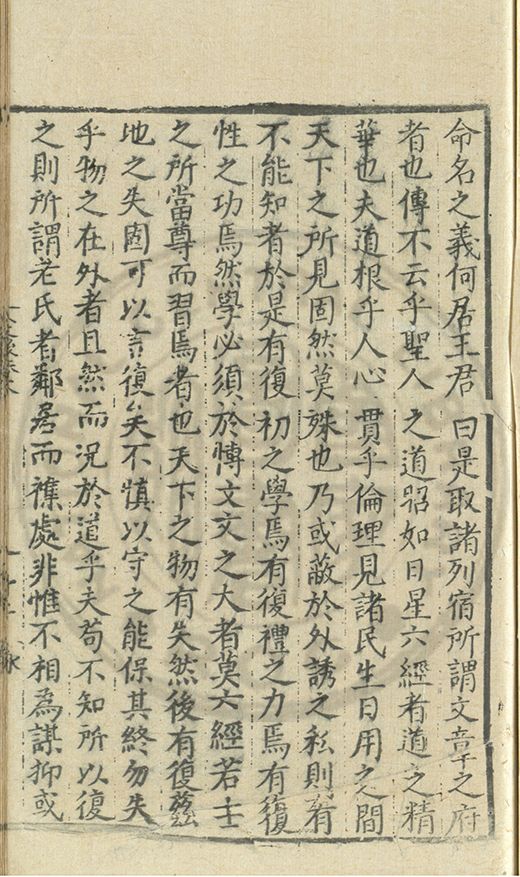 命名之義何居王君曰是取諸列宿所謂文章之府
者也傳不云乎聖人之道昭如日星六經者道之精
華也夫道根乎人心貫乎倫理見諸民生日用之間
天下之所見固然莫殊也乃或蔽於外誘之私則有
不能知者於是有復初之學焉有復禮之力焉有復
性之功焉然學必須於博文文之大者莫六經若士
之所當尊而習焉者也天下之物有失然後有復茲
地之失固可以言復矣不慎以守之能保其終勿失
乎物之在外者且然而況於道乎夫苟不知所以復
之則所謂老氏者鄰居而襍處非惟不相為謀抑或